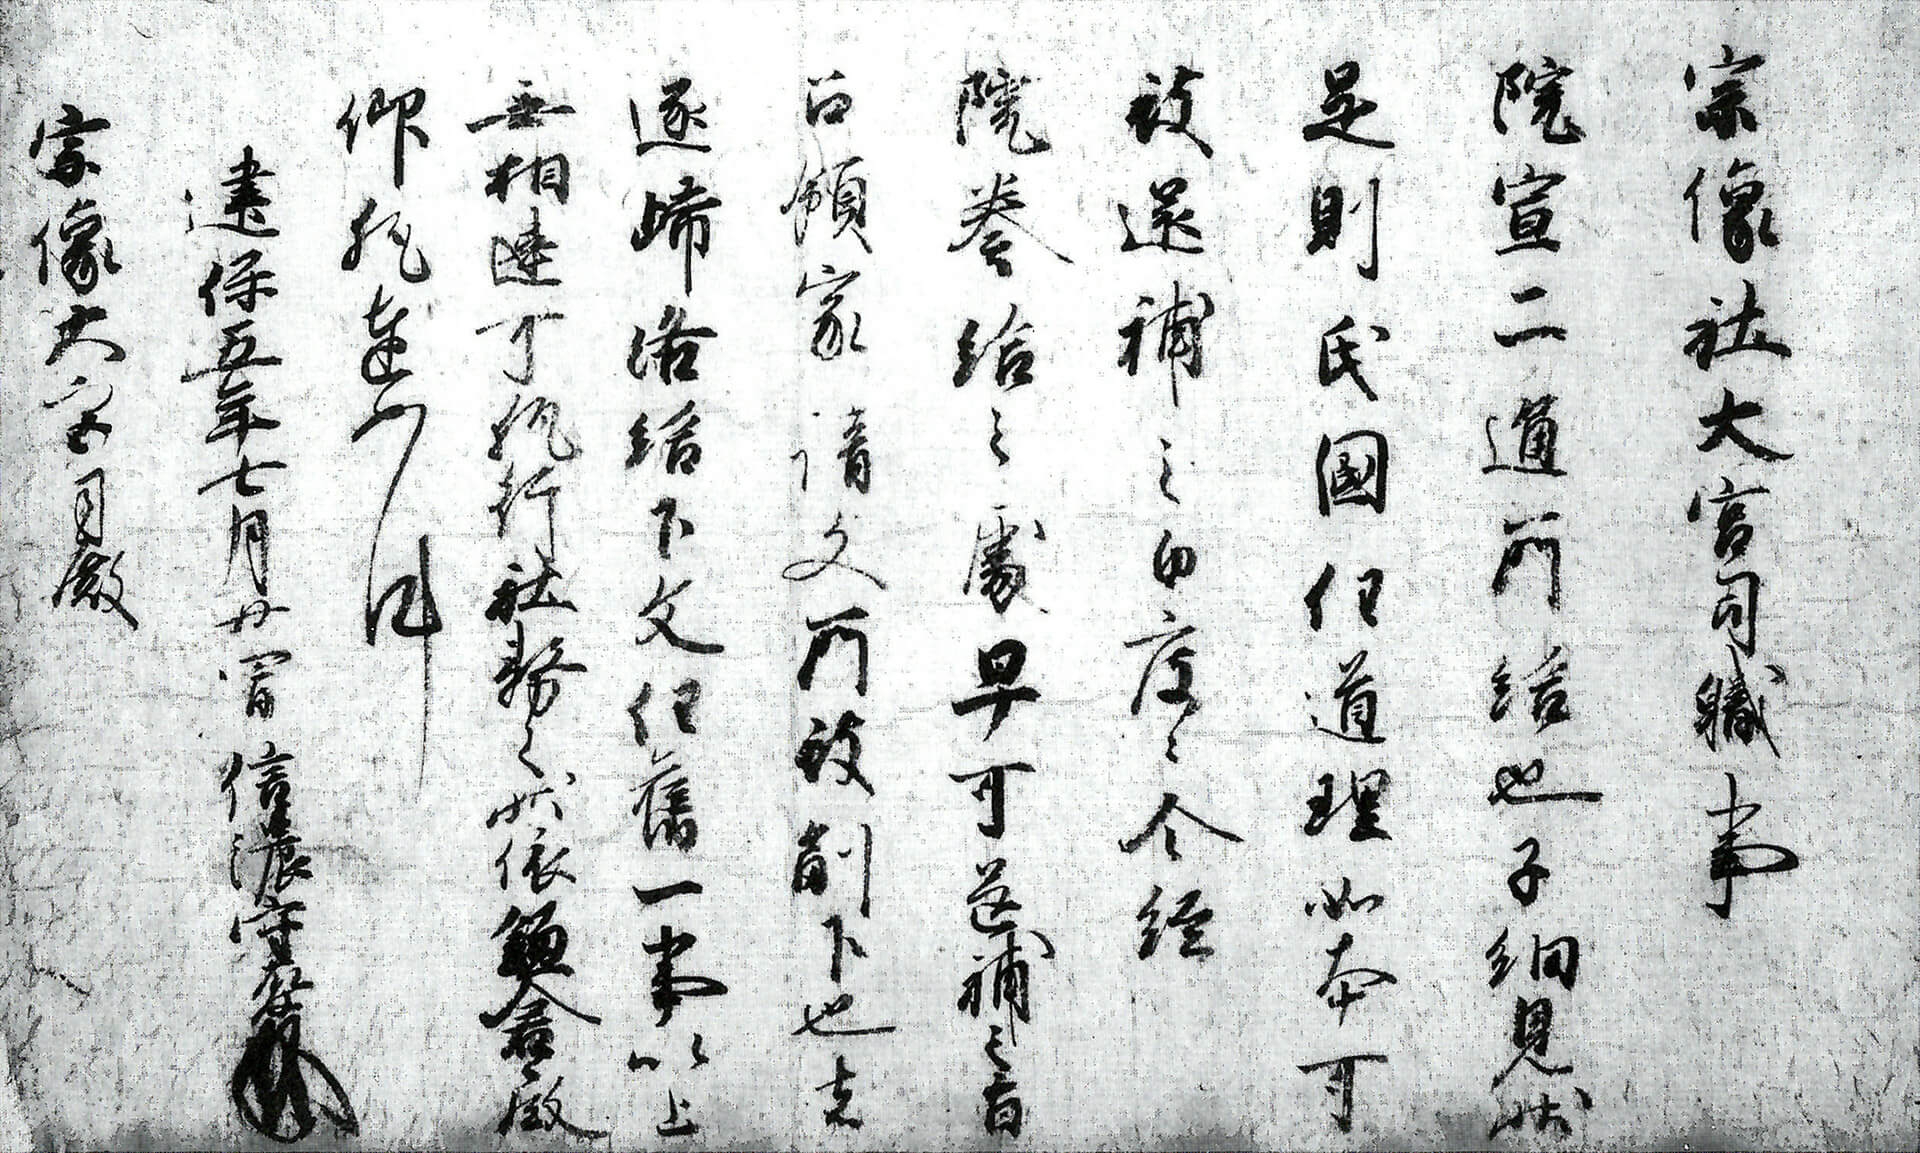 宗像社大宮司職事
院宣二通所給也子細見状
是則氏国任道理如本可
被還補之由度々令経
院奏給之處早可還補之旨
召領家請文所被副下也
遂帰洛給下文任舊一事以上
無相違可執行社務之状依鎌倉殿
仰執達如件
建保五年七月廿四日信濃守
宗像大宮司殿